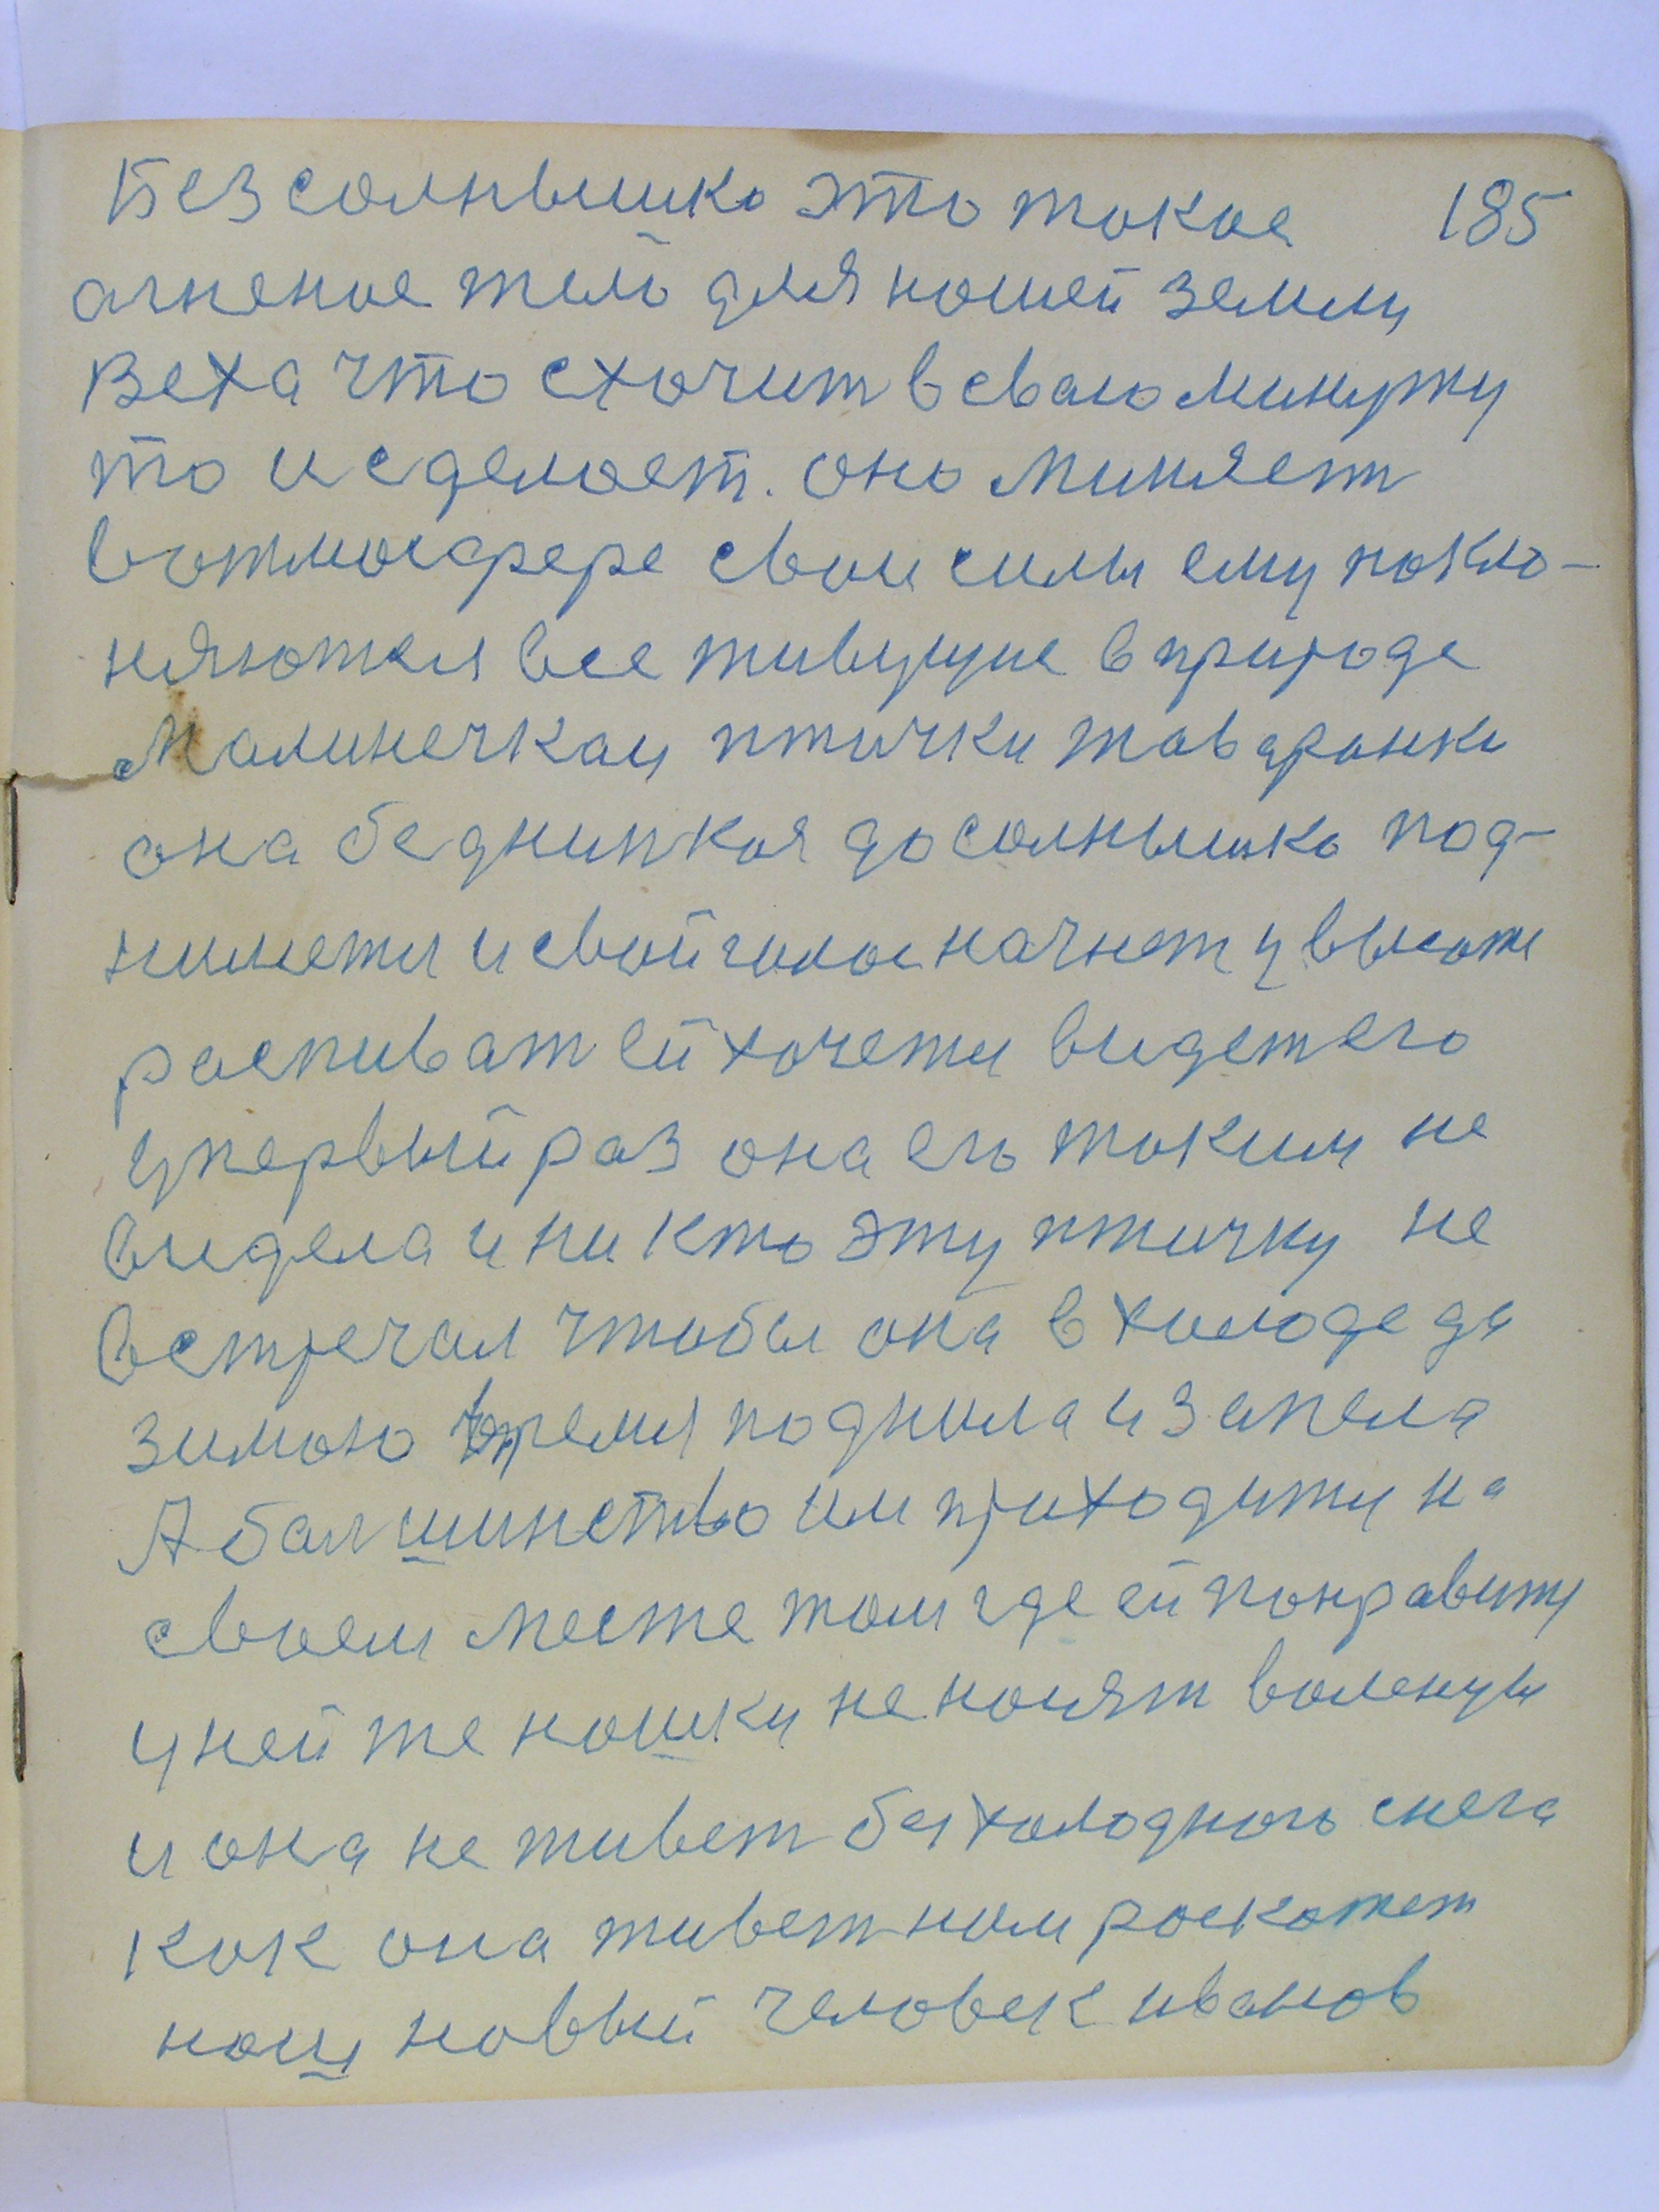 Без солнышка это такое 185
огненое тело для нашей земли
Веха что схочит в сваю минуту
то и сделает. оно миняет
в атмосфере свои силы ему покло-
няютси все живущие в природе
Малинечкаи птички жаваранки
она беднинкая до солнышка под-
нимети и свой голос начнет у высоте
распиват ей хочети видет его
у первый раз она его таким не
видела и ни кто эту птичку не
встречал чтобы она в холоде да
зимою время поднила и запела
А балшинство им приходити на
своем месте там где ей понравити
у ней же ношки не носят валенуи
и она не живет без холодного снега
как она живет нам раскажет
наш новый человек иванов